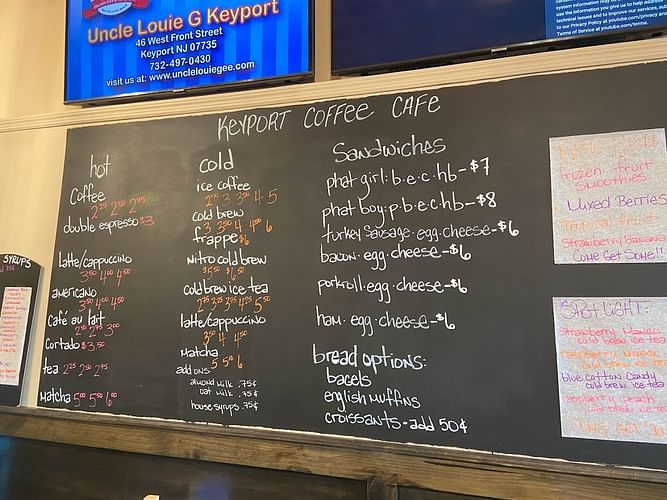 Uncle Louie G Keyport
46 West Front Street
Keyport NJ 07735
732-497-0430
visit us at: www.unclelouiegee.com
system information may be
use the information you give us to help address
technical issues and to improve our services, sub
to our Privacy Policy at youtube.com/privacy and
Terms of Service at youtube.com/terms.
KEYPORT COFFEE CAFE
hot
Coffee
2²⁵ 2⁵⁰ 2⁷⁵
double espresso $3
latte/cappuccino
3⁵⁰ 4⁰⁰ 4⁵⁰
americano
3⁵⁰ 4⁰⁰ 4⁵⁰
Café au lait
2⁵⁰ 2⁷⁵ 3⁰⁰
Cortado $3.50
tea 2²⁵ 2⁵⁰ 2⁷⁵
Matcha 5⁰⁰ 5⁵⁰ 6⁰⁰
cold
ice coffee
3 3⁵⁰ 4 5
cold brew
3 3⁵⁰ 4 4⁵⁰ 6
frappe $6
nitro cold brew
$5⁵⁰ $6⁵⁰
cold brew ice tea
2⁷⁵ 3²⁵ 3⁷⁵ 4²⁵ 5⁵⁰
latte/cappuccino
3⁵⁰ 4 4⁵⁰
Matcha
5 5⁵⁰ 6
add ons
almond milk .75¢
oat milk .75¢
house syrups .75¢
Sandwiches
phat girl: b·e·c·hb-$7
phat boy: p·b·e·c·hb-$8
turkey Sausage·egg·cheese-$6
bacon·egg·cheese-$6
porkroll·egg·cheese-$6
ham·egg·cheese-$6
bread options:
bagels
english muffins
croissants-add 50¢
frozen fruit
smoothies
Mixed Berries
Tropical fruit
Strawberry Banana
Come Get Some!!
SPOTLIGHT:
Strawberry Mango
cold brew ice tea
raspberry Mango
cold brew ice tea
blue Cotton Candy
cold brew ice tea
raspberry peach
cold brew ice tea
SYRUPS